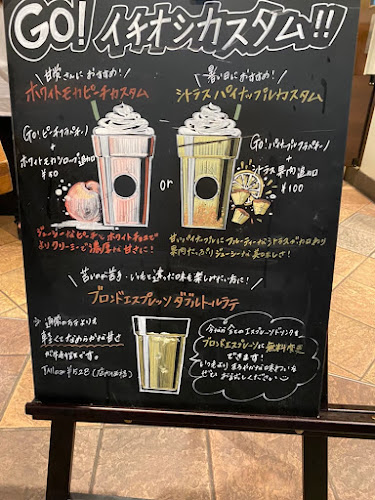 GO! イチオシカスタム!!
甘党さんにおすすめ!
ホワイトモカピーチカスタム
GO! ピーチフラペチーノ
+
ホワイトモカシロップ追加
¥50
ジューシーなピーチとホワイトチョコで
よりクリーミーで濃厚な甘さに!
or
暑い日におすすめ!
シトラスパイナップルカスタム
GO! パイナップルフラペチーノ
+
シトラス果肉追加
¥100
甘ずっぱいパイナップルにフルーティーなシトラスが加わり
果肉たっぷりジューシーな美味しさ!
苦いのが苦手・いつもと違った味を楽しみたい方に!
ブロンドエスプレッソ ダブルトールラテ
通常のラテよりも
軽くてなめらかな甘さ
が特徴です。
Tall ¥528 (店内価格)
今なら全てのエスプレッソドリンクを
ブロンドエスプレッソに無料変更
できます!
いつもよりまろやかな味わいを
ぜひお試しください